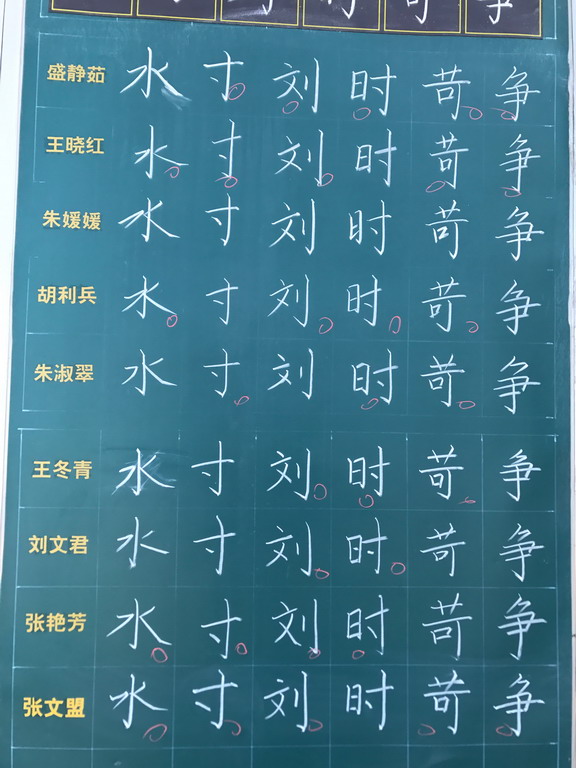 盛静茹 水 寸 刘 时 苛 争
王晓红 水 寸 刘 时 苛 争
朱媛媛 水 寸 刘 时 苛 争
胡利兵 水 寸 刘 时 苛 争
朱淑翠 水 寸 刘 时 苛 争
王冬青 水 寸 刘 时 苛 争
刘文君 水 寸 刘 时 苛 争
张艳芳 水 寸 刘 时 苛 争
张文盟 水 寸 刘 时 苛 争